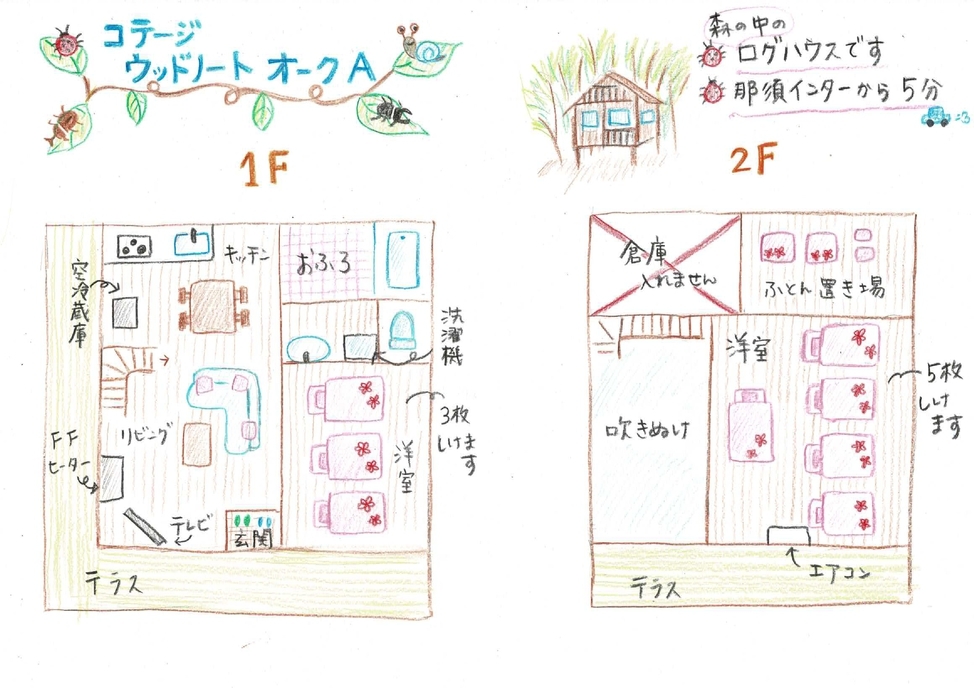 コテージ
ウッドノート オークA
森の中の
ログハウスです
那須インターから5分
1F
2F
キッチン
おふろ
空冷蔵庫
洗濯機
リビング
FF
ヒーター
テレビ
玄関
洋室
3枚
しけます
テラス
倉庫
入れません
ふとん置き場
洋室
吹きぬけ
5枚
しけます
エアコン
テラス